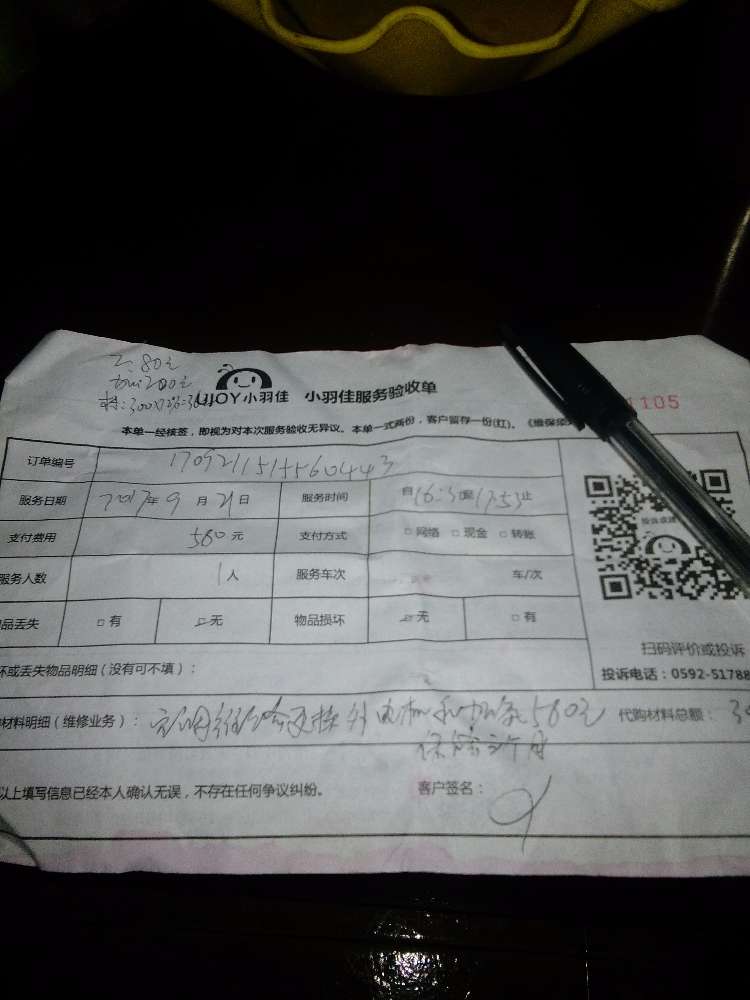 80元
加氟200元
UJOY小羽佳 小羽佳服务验收单
1105
本单一经核签，即视为对本次服务验收无异议。本单一式两份，客户留存一份(红)。《维保须
订单编号
服务日期 2017年9月21日 服务时间 自16:30至17:53止
支付费用 580元 支付方式 □网络 □现金 □转账
服务人数 1人 服务车次 车/次
品丢失 □有 □无 物品损坏 □无 □有
坏或丢失物品明细（没有可不填）：
扫码评价或投诉
投诉电话：0592-51788
材料明细（维修业务）： 空调维修更换外电机和加氟580元 代购材料总额：
保修三个月
以上填写信息已经本人确认无误，不存在任何争议纠纷。 客户签名：